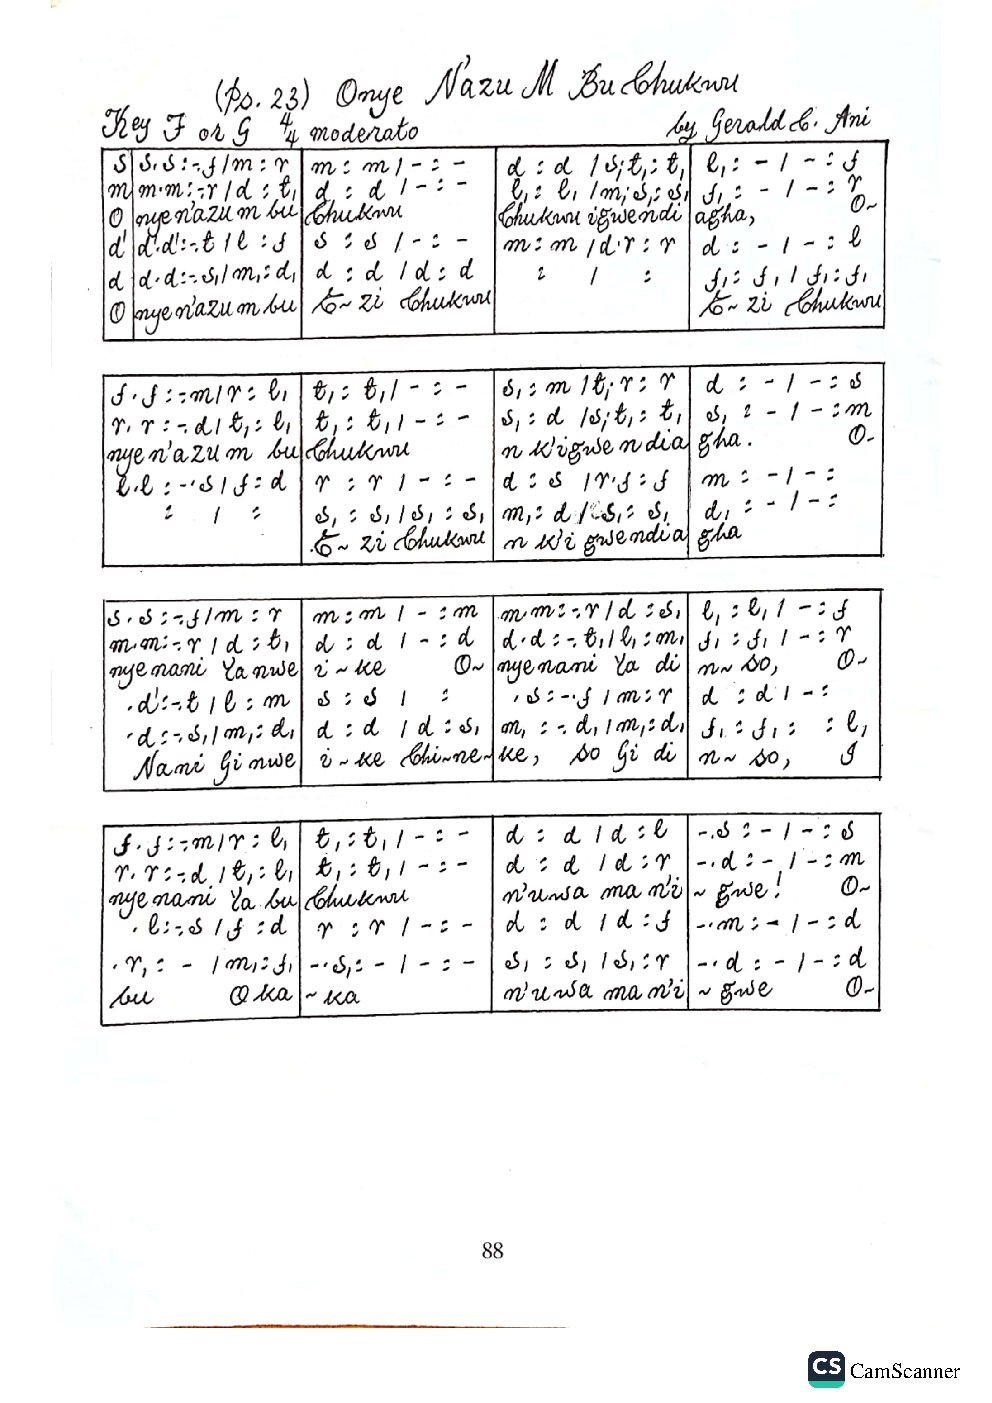 (Ps. 23) Onye N'azu M Bu Chukwu
Key F or G 4/4 moderato by Gerald C. Ani
s | s.s:-.f/m:r | m:m/-:- | d:d/s,.t,:t, | l,:-/-:f
m | m.m:-.r/d:t, | d:d/-:- | l,:l,/m,.s,:s, | f,:-/-:r
O | nye n'azu m bu | Chukwu | Chukwu igwendi | agha, O~
d' | d'.d':-.t/l:f | s:s/-:- | m:m/d.r:r | d:-/-:l
d | d.d:-.s,/m,:d, | d:d/d:d | : / : | f,:f,/f,:f,
O | nye n'azu m bu | E~ zi Chukwu | E~ zi Chukwu
f.f:-.m/r:l, | t,:t,/-:- | s,:m/t,.r:r | d:-/-:s
r.r:-.d/t,:l, | t,:t,/-:- | s,:d/s,.t,:t, | s,:-/-:m
nye n'azu m bu | Chukwu | n k'igwe ndia | gha. O-
l.l:-.s/f:d | r:r/-:- | d:s/r.f:f | m:-/-:
: / : | s,:s,/s,:s, | m,:d/s,:s, | d,:-/-:
E~ zi Chukwu | n k'i gwe ndia | gha
s.s:-.f/m:r | m:m/-:m | m.m:-.r/d:s, | l,:l,/-:f
m.m:-.r/d:t, | d:d/-:d | d.d:-.t,/l,:m, | f,:f,/-:r
nye nani Ya nwe | i~ke O~ | nye nani Ya di | n~ so, O~
.d':-.t/l:m | s:s/ : | .s:-.f/m:r | d:d/-:
.d:-.s,/m,:d, | d:d/d:s, | m,:-.d,/m,:d, | f,:f,: :l,
Nani Gi nwe | i~ke Chi~ne~ | ke, so Gi di | n~ so, I
f.f:-.m/r:l, | t,:t,/-:- | d:d/d:l | -.s:-/-:s
r.r:-.d/t,:l, | t,:t,/-:- | d:d/d:r | -.d:-/-:m
nye nani Ya bu | Chukwu | n'uwa ma n'i | ~ gwe! O~
.l:-.s/f:d | r:r/-:- | d:d/d:f | -.m:-/-:d
.r,:-/m,:f, | -.s,:-/-:- | s,:s,/s,:r | -.d:-/-:d
bu O ka | ~ ka | n'uwa ma n'i | ~ gwe O~
88
CS CamScanner